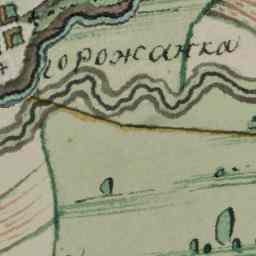 горожанка